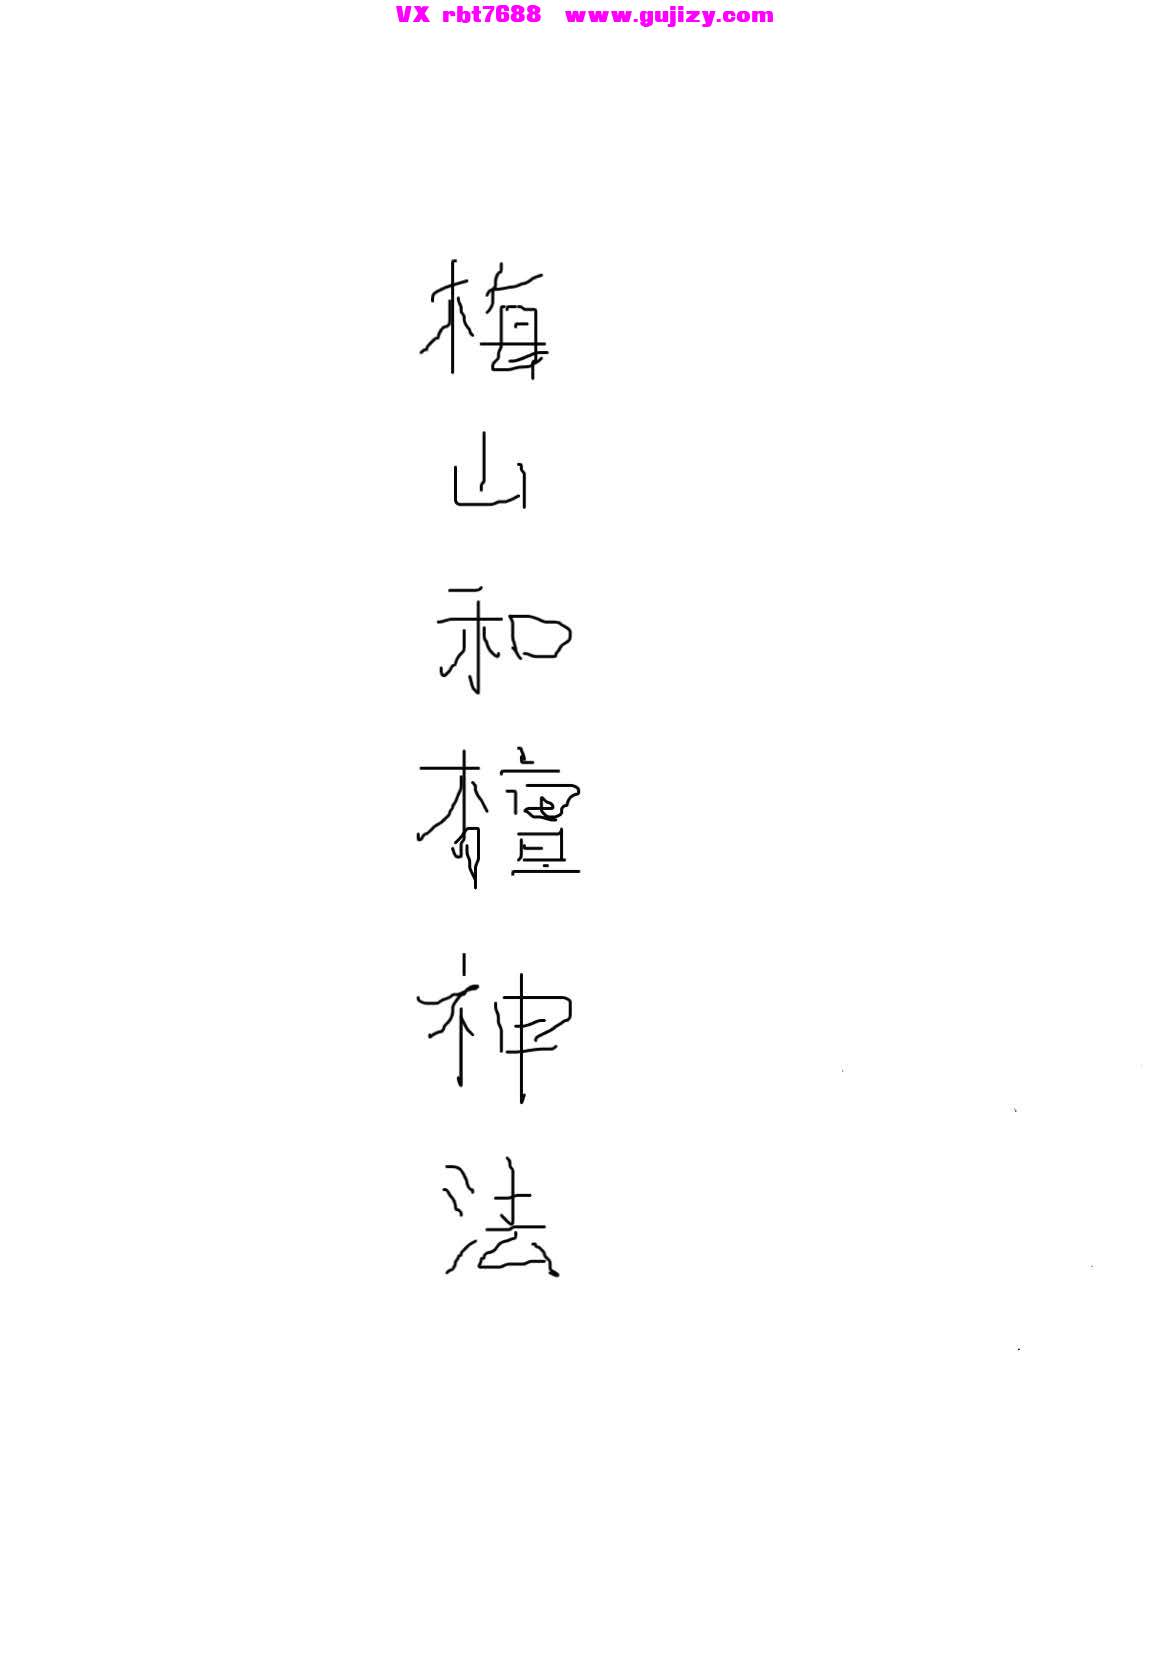 VX rbt7688 www.gujizy.com
梅山和檀神法